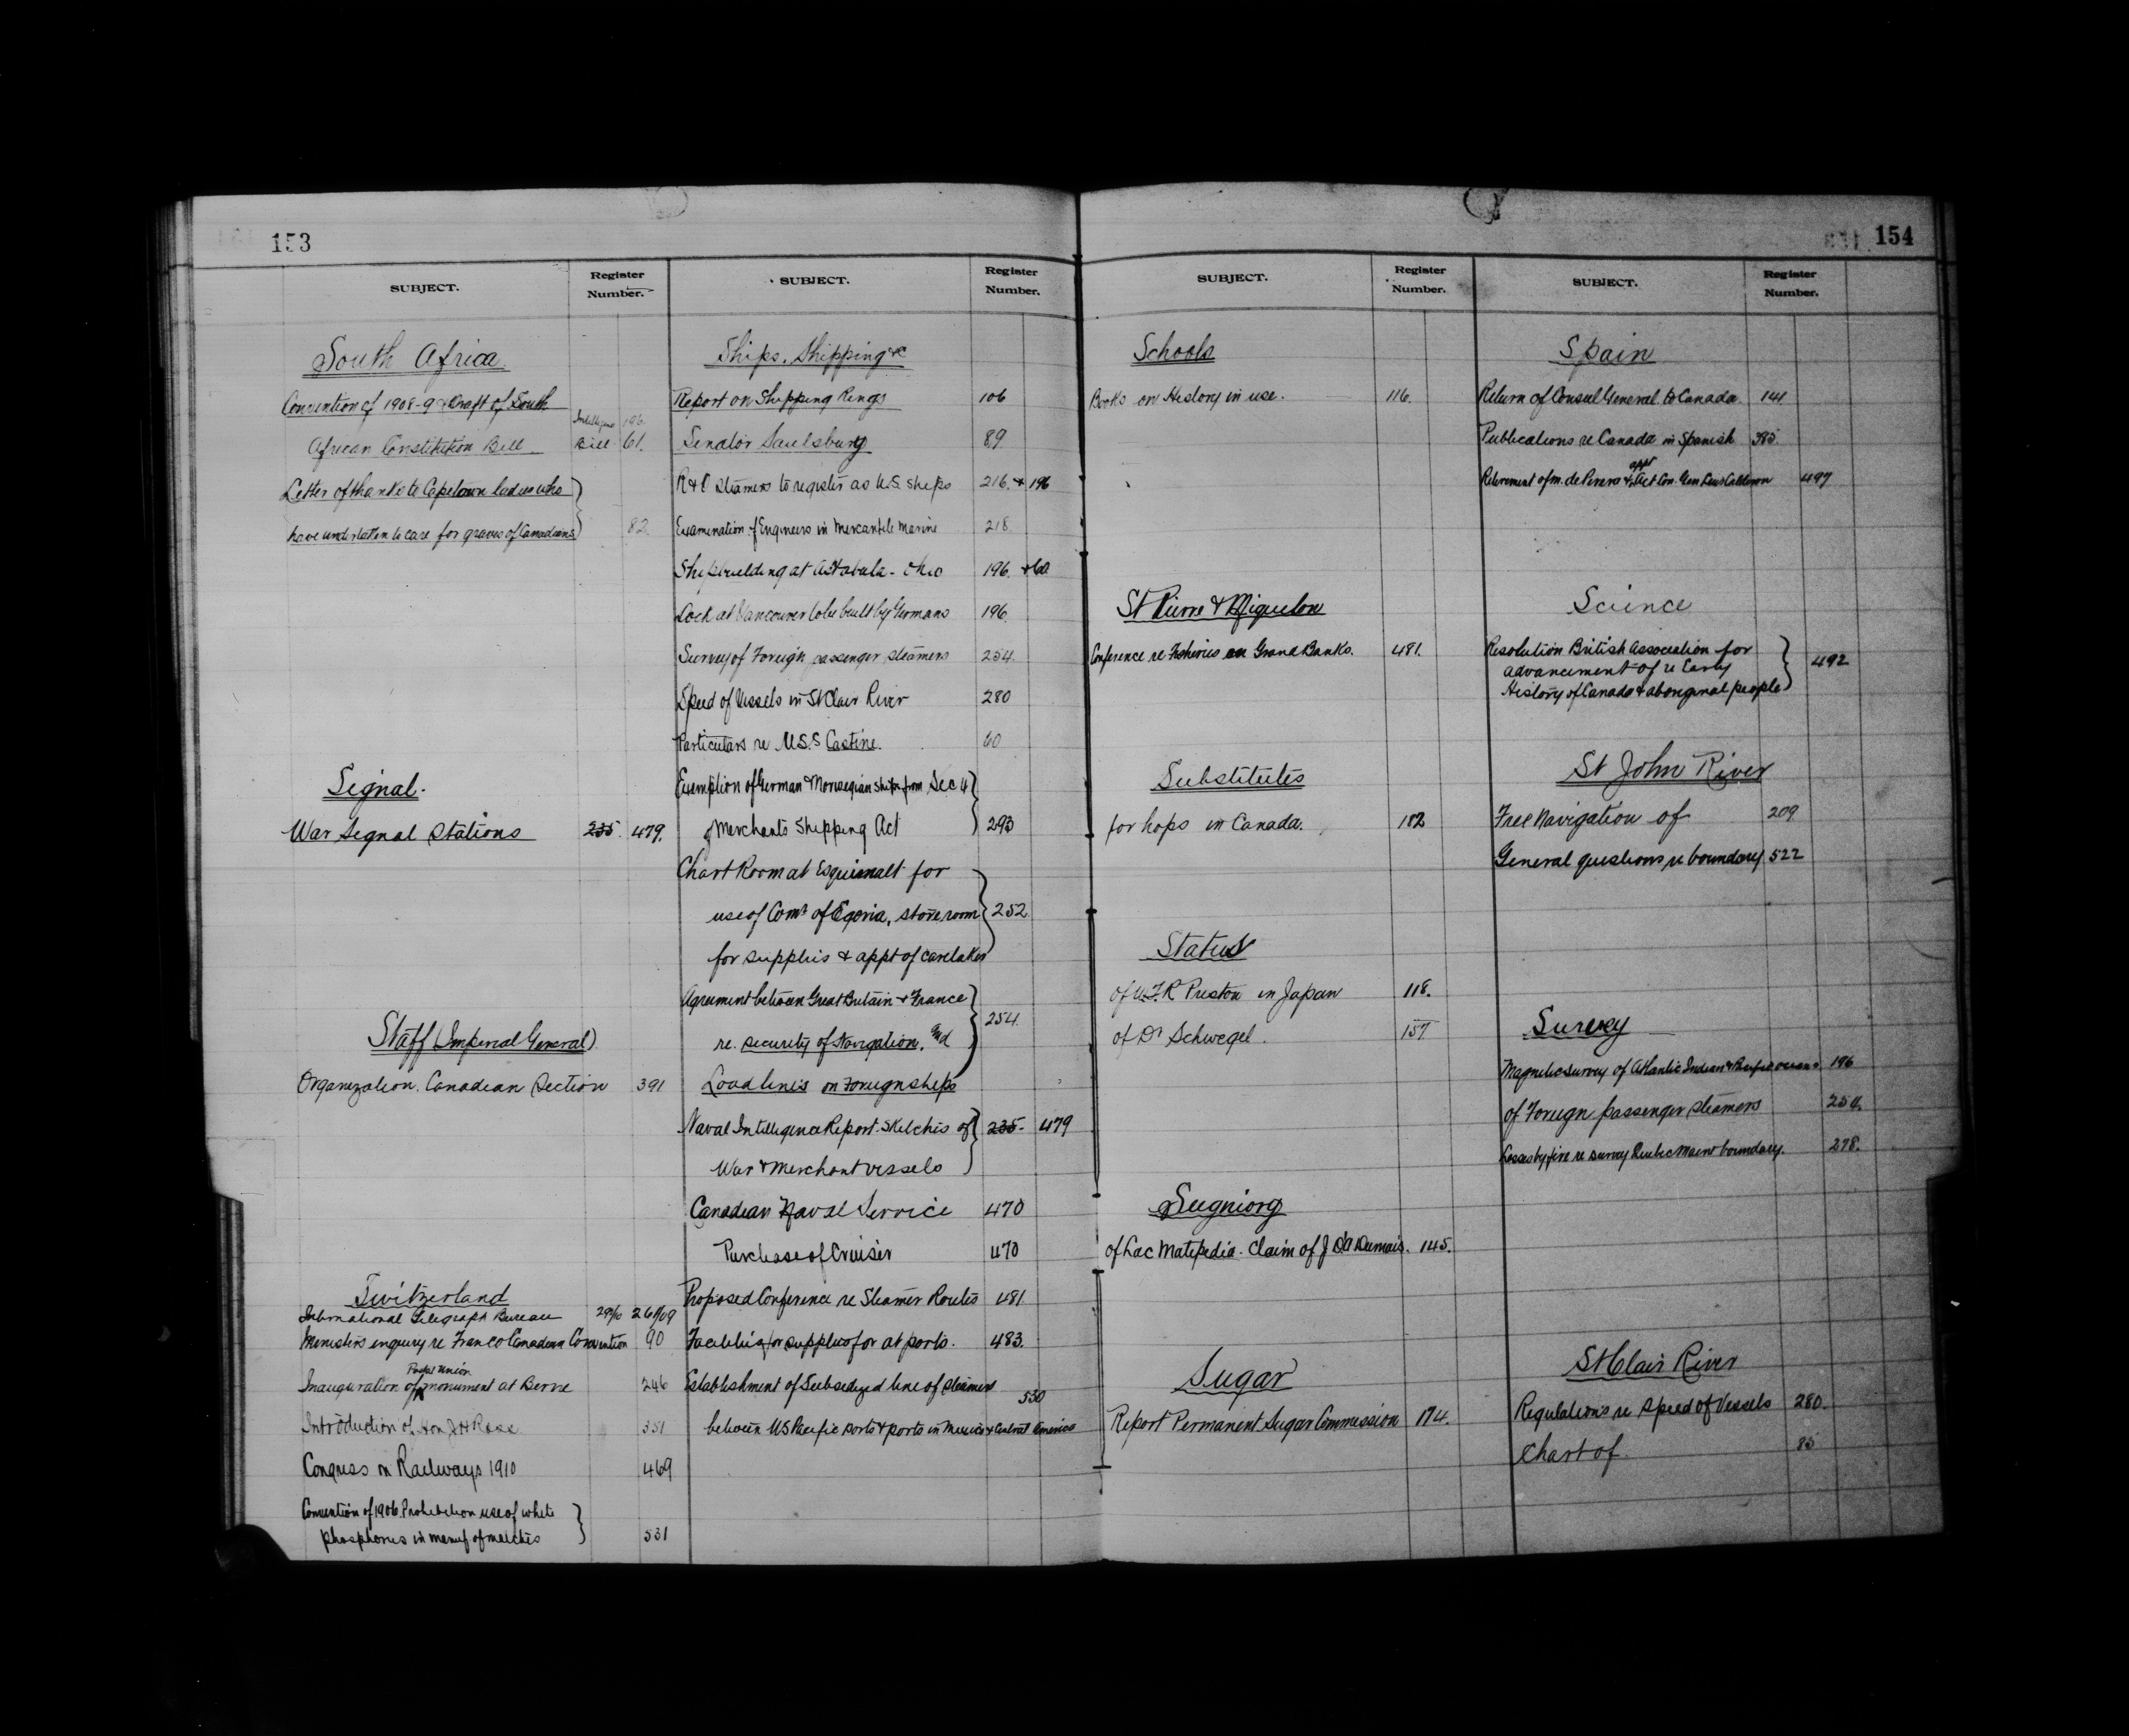 153
SUBJECT.
Register
Number.
South Africa
Convention of 1908-9 & Draft of South
African Constitution Bill
Bill 61.
196
Letter of thanks to Capetown ladies who
have undertaken to care for graves of Canadians
82.
Signal.
War Signal Stations 235. 479.
Staff (Imperial General)
Organization. Canadian Section 391
Switzerland
International Telegraph Bureau 29/10 261/09
Ministers enquiry re Franco Canadian Convention 90
Postal Union
Inauguration of monument at Berne 246
Introduction of Hon J H Ross 351
Congress on Railways 1910 469
Convention of 1906. Prohibition use of white
phosphorus in manuf of matches 531
SUBJECT.
Register
Number.
Ships. Shipping &c
Report on Shipping Rings 106
Senator Saulsbury 89
R & O Steamers to register as U.S. ships 216. & 196
Examination of Engineers in Mercantile Marine 218
Shipbuilding at Astabula - Ohio 196. & 60
Lock at Vancouver to be built by Germans 196.
Survey of Foreign passenger steamers 254.
Speed of Vessels in St Clair River 280
Particulars re U.S.S Castine. 60
Exemption of German & Norwegian ships from Sec 4
of Merchants Shipping Act 293
Chart Room at Esquimalt for
use of Comr of Egeria, store room 252
for supplies & appt of caretaker
Agreement between Great Britain & France
re. security of Navigation, and 254.
Load lines on Foreign ships
Naval Intelligence Report. Sketches of 235. 479
War & Merchant vessels
Canadian Naval Service 470
Purchase of Cruiser 470
Proposed Conference re Steamer Routes 481
Facilities for supplies for at ports. 483.
Establishment of Subsidized line of steamers
530
between US Pacific ports & ports in Mexico & Central America
154
SUBJECT.
Register
Number.
Schools
Books on History in use. 116.
St Pierre & Miquelon
Conference re Fisheries on Grand Banks. 481.
Substitutes
for hops in Canada. 102
Status
of W.T.R Preston in Japan 118.
of Dr Schwegel. 157
Seigniory
of Lac Matapedia. Claim of J D'A Dumais. 145.
Sugar
Report Permanent Sugar Commission 174.
SUBJECT.
Register
Number.
Spain
Return of Consul General to Canada 141
Publications re Canada in Spanish 385.
appt
Retirement of M. de Perera & Act Con. Gen 497
Science
Resolution British Association for
advancement of re Early 492
History of Canada & aboriginal people
St John River
Free Navigation of 209
General questions re boundary 522
Survey
Magnetic survey of Atlantic Indian & Pacific oceans 196
of Foreign passenger steamers 254.
Losses by fire re survey Quebec Maine boundary. 278.
St Clair River
Regulations re Speed of Vessels 280.
Chart of 85